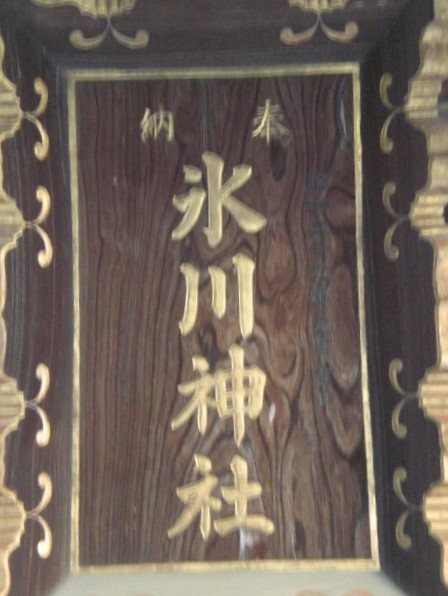 奉納
氷川神社